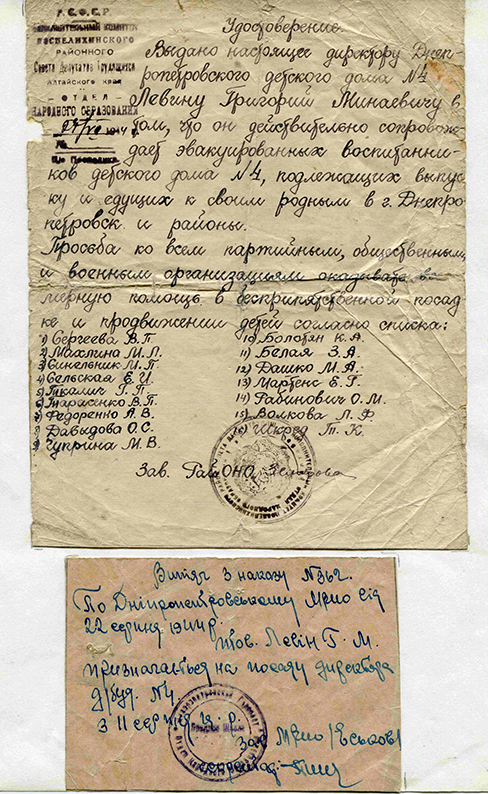 Р.С.Ф.С.Р.
Исполнительный комитет
Поспелихинского
районного
Совета Депутатов Трудящихся
Алтайского края
ОТДЕЛ
НАРОДНОГО ОБРАЗОВАНИЯ
1944 г.
№
Удостоверение
Выдано настоящее директору Днеп-
ропетровского детского дома №4
Левину Григорий Минаевичу в
том, что он действительно сопровож-
дает эвакуированных воспитанни-
ков детского дома №4, подлежащих выпус-
ку и едущих к своим родным в г. Днепро-
петровск и районы.
Просьба ко всем партийным, общественным,
и военным организациям оказывать вс
мерную помощь в беспрепятственной посад
ке и продвижении детей согласно списка:
1) Сергеева В.П.
2) Махлина М.Л.
3) Синельник М.П.
4) Сельская Е.И.
5) Ткалич Г.П.
6) Тарасенко В.П.
7) Федоренко А.В.
8) Давыдова О.С.
9) Чуприна М.В.
10) Болотян К.А.
11) Белая З.А.
12) Дашко М.А.
13) Мартенс Е.Г.
14) Рабинович О.М.
15) Волкова Л.Ф.
Шкред Т.К.
Зав. РайОНО
Витяг з наказу №362.
По Дніпропетровському МВНО від
22 серпня 1944 р.
тов. Левін Г.М.
призначається на посаду директора
д/буд. №4.
з 11 серпня ц.р.
Зав МВНО /Еськов/